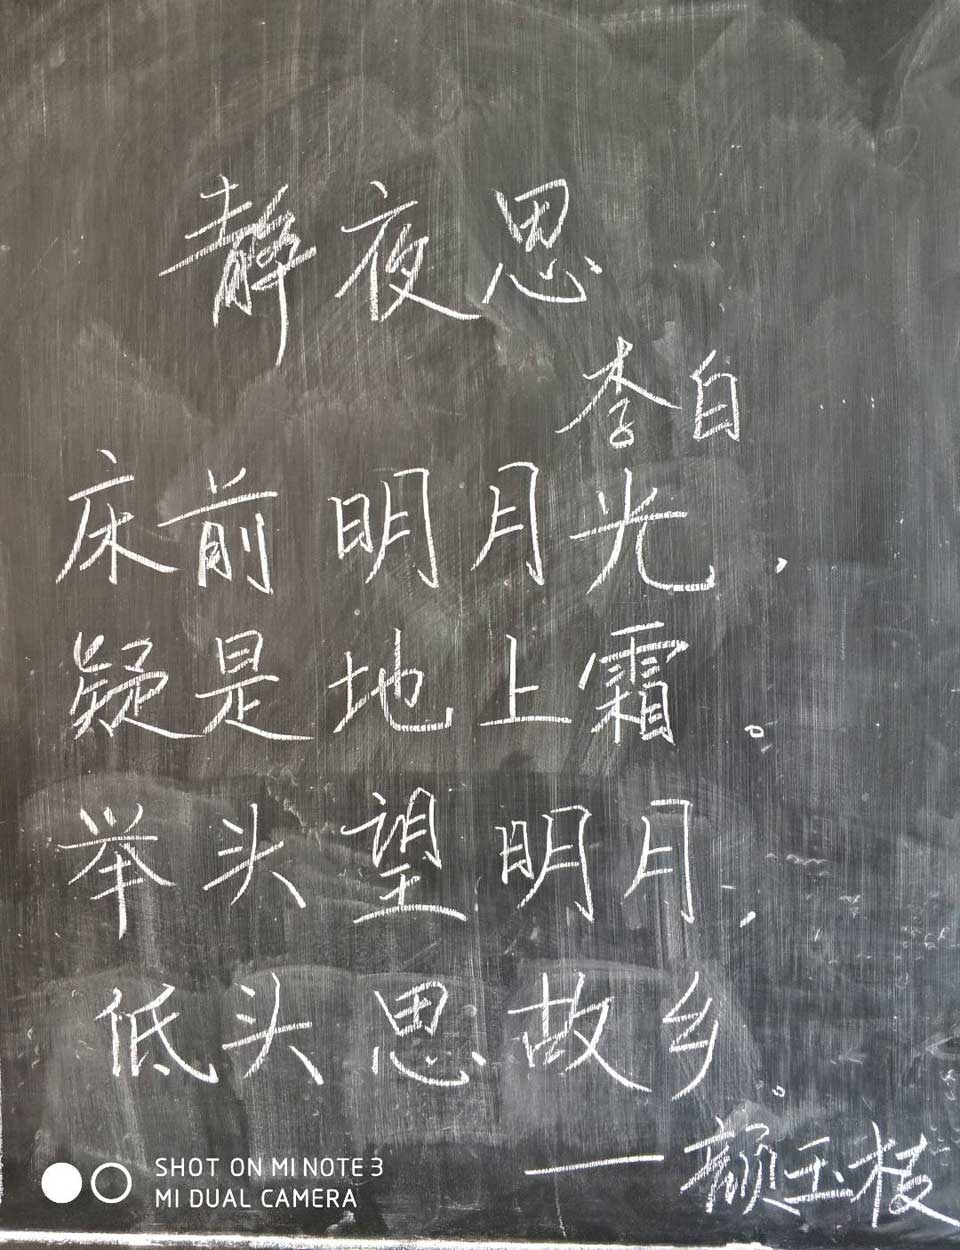 静夜思
李白
床前明月光，
疑是地上霜。
举头望明月，
低头思故乡。
——颜玉枝
SHOT ON MI NOTE 3
MI DUAL CAMERA